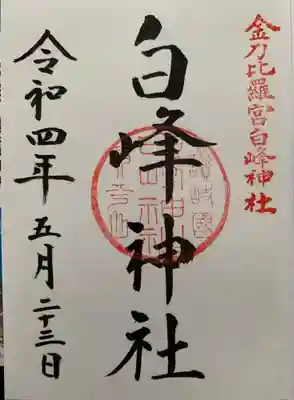 金刀比羅宮白峰神社
白峰神社
令和四年五月二十三日